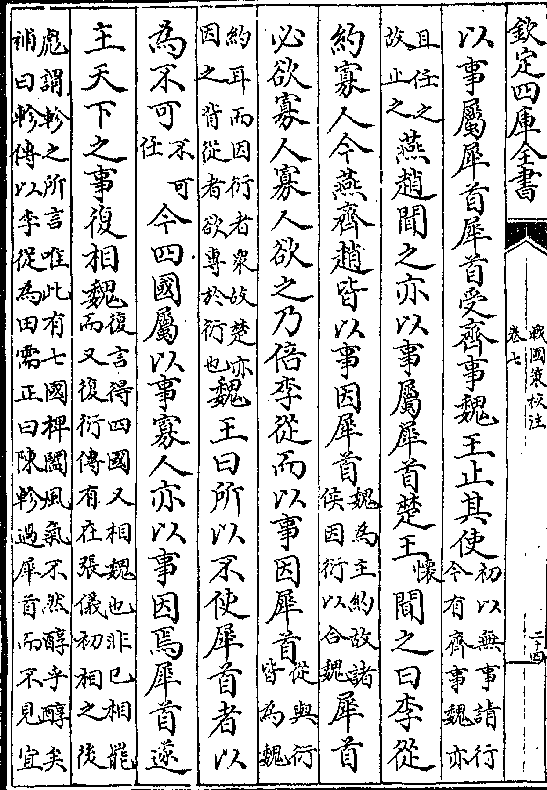 欽定四庫全書
戰國策校注
卷七
二十四
以事屬犀首犀首受齊事魏王止其使初以無事請行今有齊事魏亦
且任之故止之燕趙聞之亦以事屬犀首楚王懷聞之曰李從
約寡人今燕齊趙皆以事因犀首魏為主約故諸侯因衍以合魏犀首
必欲寡人寡人欲之乃倍李從而以事因犀首從與衍皆為魏
約耳而因衍者衆故楚亦因之背從者欲專於衍也魏王曰所以不使犀首者以
為不可不可任今四國屬以事寡人亦以事因焉犀首遂
主天下之事復相魏復言得四國又相魏也非已相能而又復衍傳有在張儀初相之後
彪謂軫之所言唯此有七國捭闔風氣不然醇乎醇矣
補曰軫傳以李從為田需正曰陳軫過犀首而不見宜